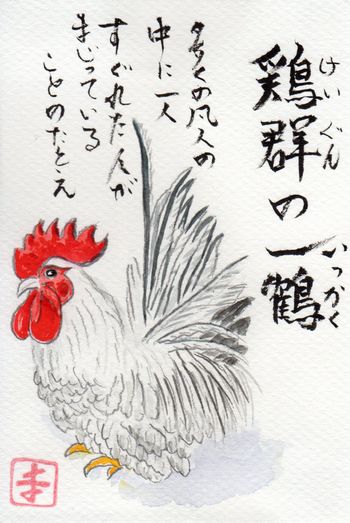 鶏群の一鶴
けいぐん
いっかく
多くの凡人の
中に一人
すぐれた人が
まじっている
ことのたとえ